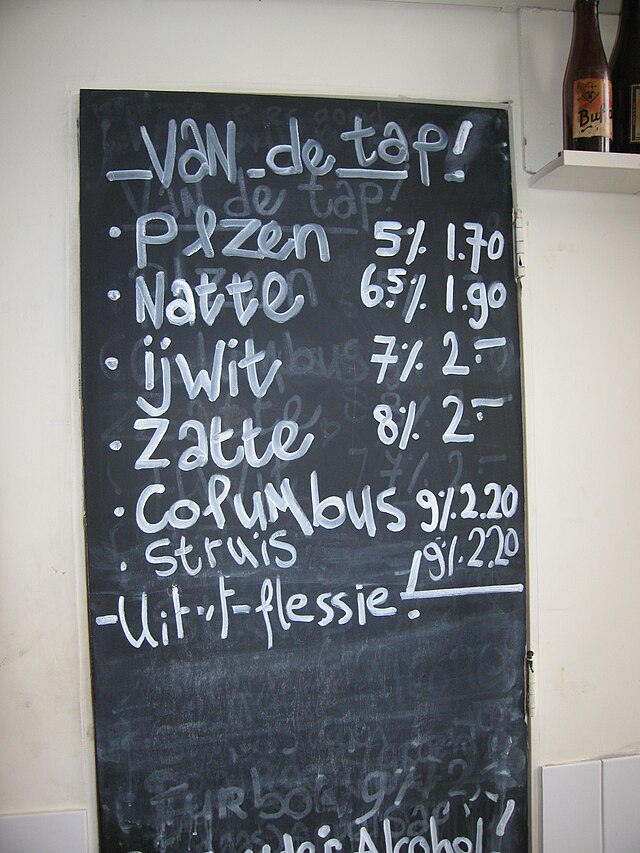 Van de tap!
Van de tap!
• Plzen 5% 1.70
• Natte 6.5% 1.90
• ijwit 7% 2.-
• Zatte 8% 2.-
• Columbus 9% 2.20
• struis 9% 2.20
- Uit 't flessie!
Turbo 9% 2.-
Alcohol!